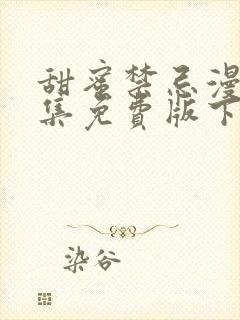 甜蜜禁忌漫
集免費版下
染谷